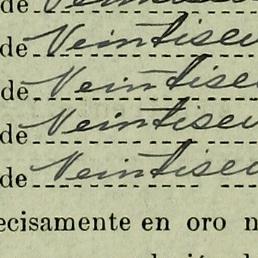 de
de Veintiseu
de Veintiseu
de Veintiseu
de Veintiseu
ecisamente en oro n